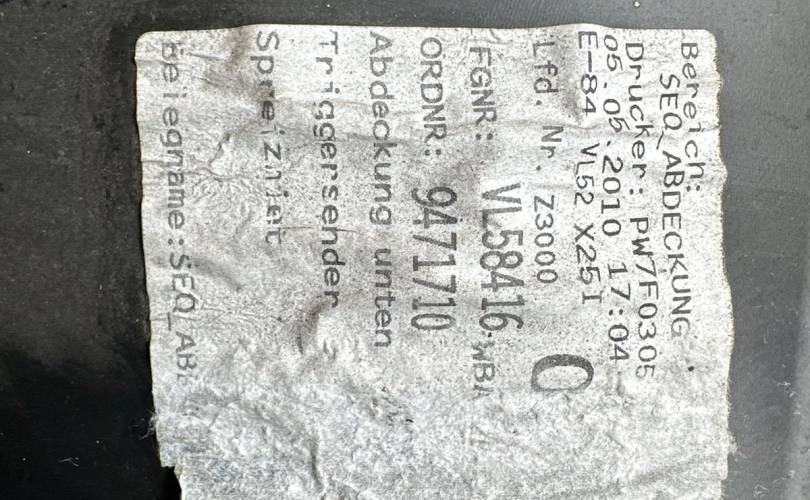 Bereich:
SEQ_ABDECKUNG
Drucker: PW7F0305
05.05.2010 17:04
E-84 VL52 X25I
Lfd. Nr. Z3000 0
FGNR: VL58416 WBA
ORDNR: 9471710
Abdeckung unten
Triggersender
Spreizniet
Belegname:SEQ_AB